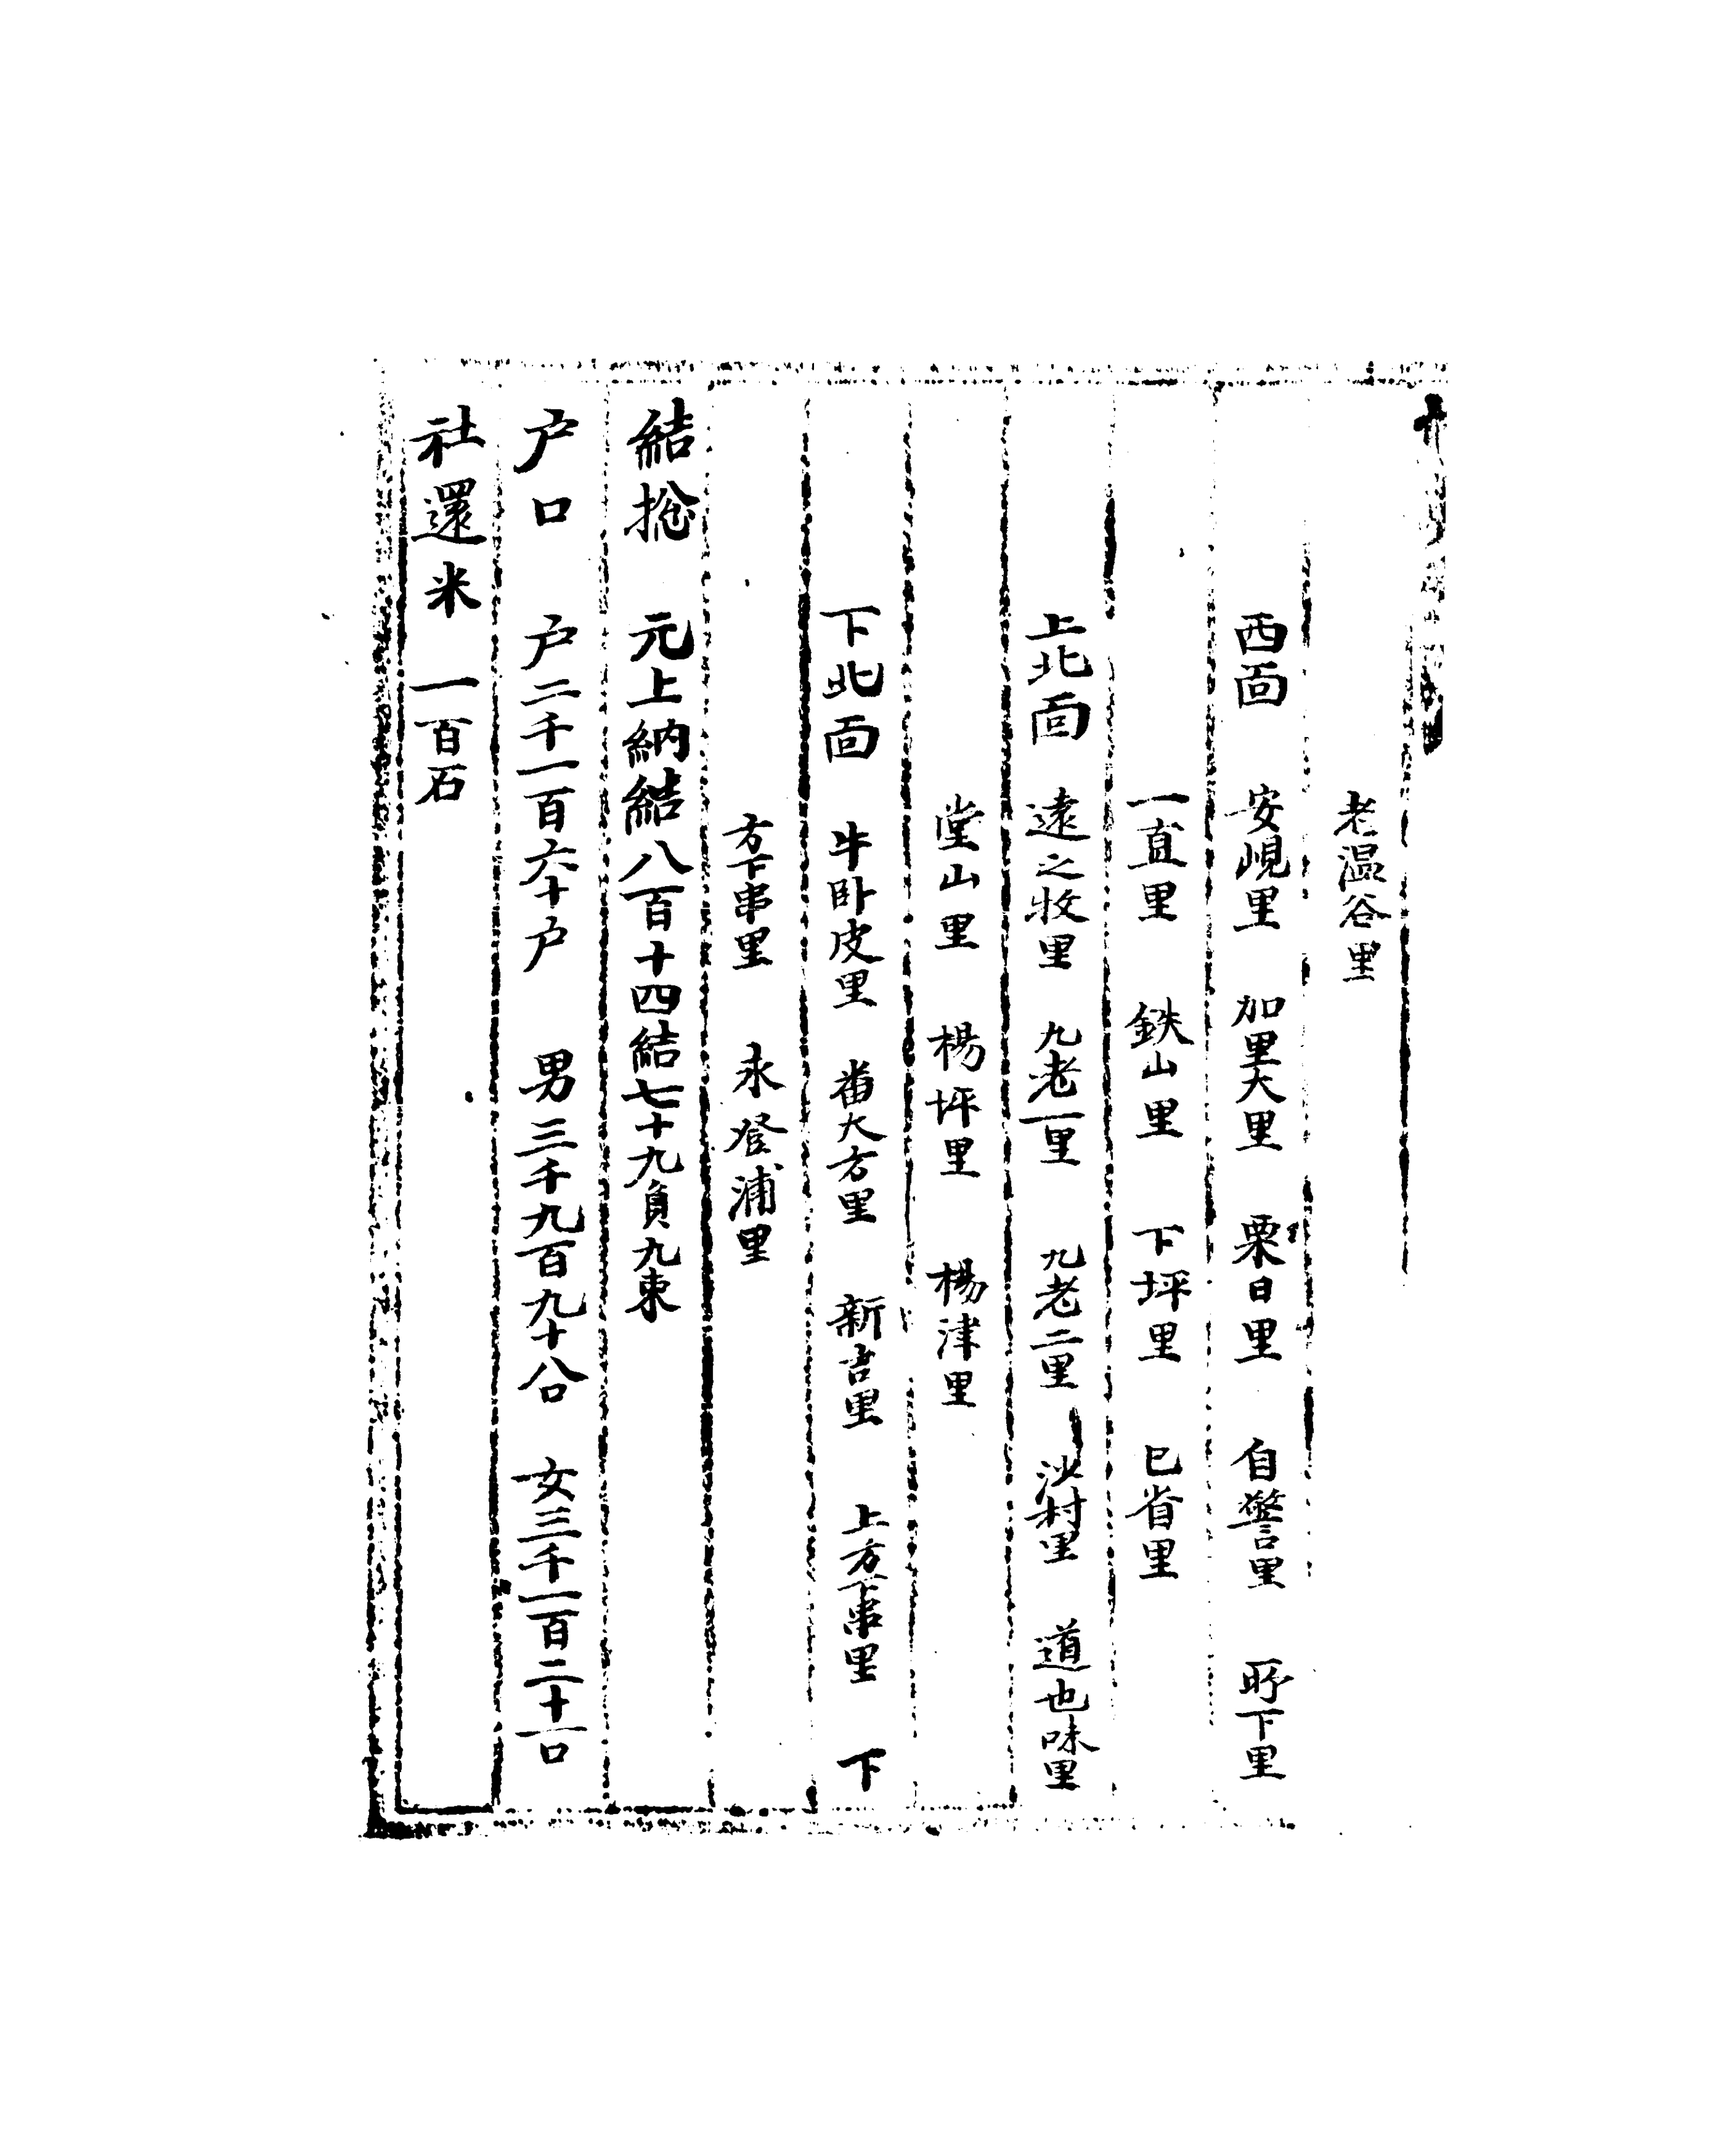 老温谷里
西面 安峴里 加里大里 栗日里 自警里 所下里
一直里 鉄山里 下坪里 已省里
上北面 遠之牧里 九老一里 九老二里 沙村里 道也味里
堂山里 楊坪里 楊津里
下北面 牛臥皮里 番大方里 新吉里 上方下串里 下
方下串里 永登浦里
結捴 元上納結八百十四結七十九負九束
户口 户二千一百六十户 男三千九百九十八口 女三千一百二十一口
社還米 一百石